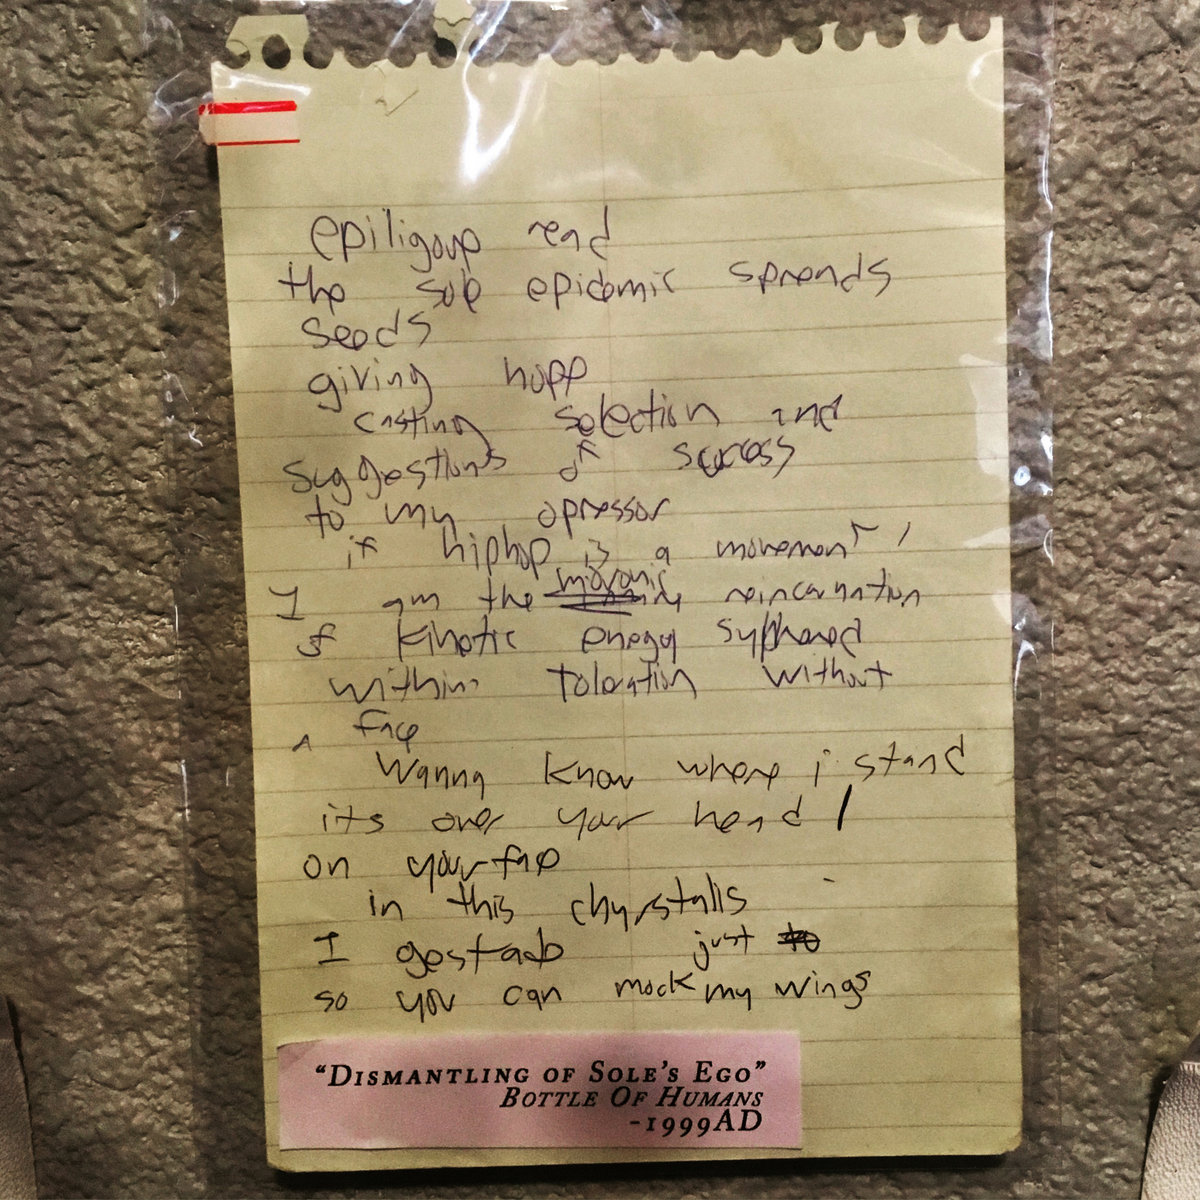 epiligoup read
the sole epidemic spreads
seeds
giving hope
casting selection and
suggestions of success
to my opressor
if hiphop is a movement /
I am the moronic reincarnation
of kinetic enegy syphened
within toleration without
A face
Wanna know where i stand
its over your head /
on your face
in this chyrstalis
I gestate just
so you can mock my wings
"DISMANTLING OF SOLE'S EGO"
BOTTLE OF HUMANS
-1999AD